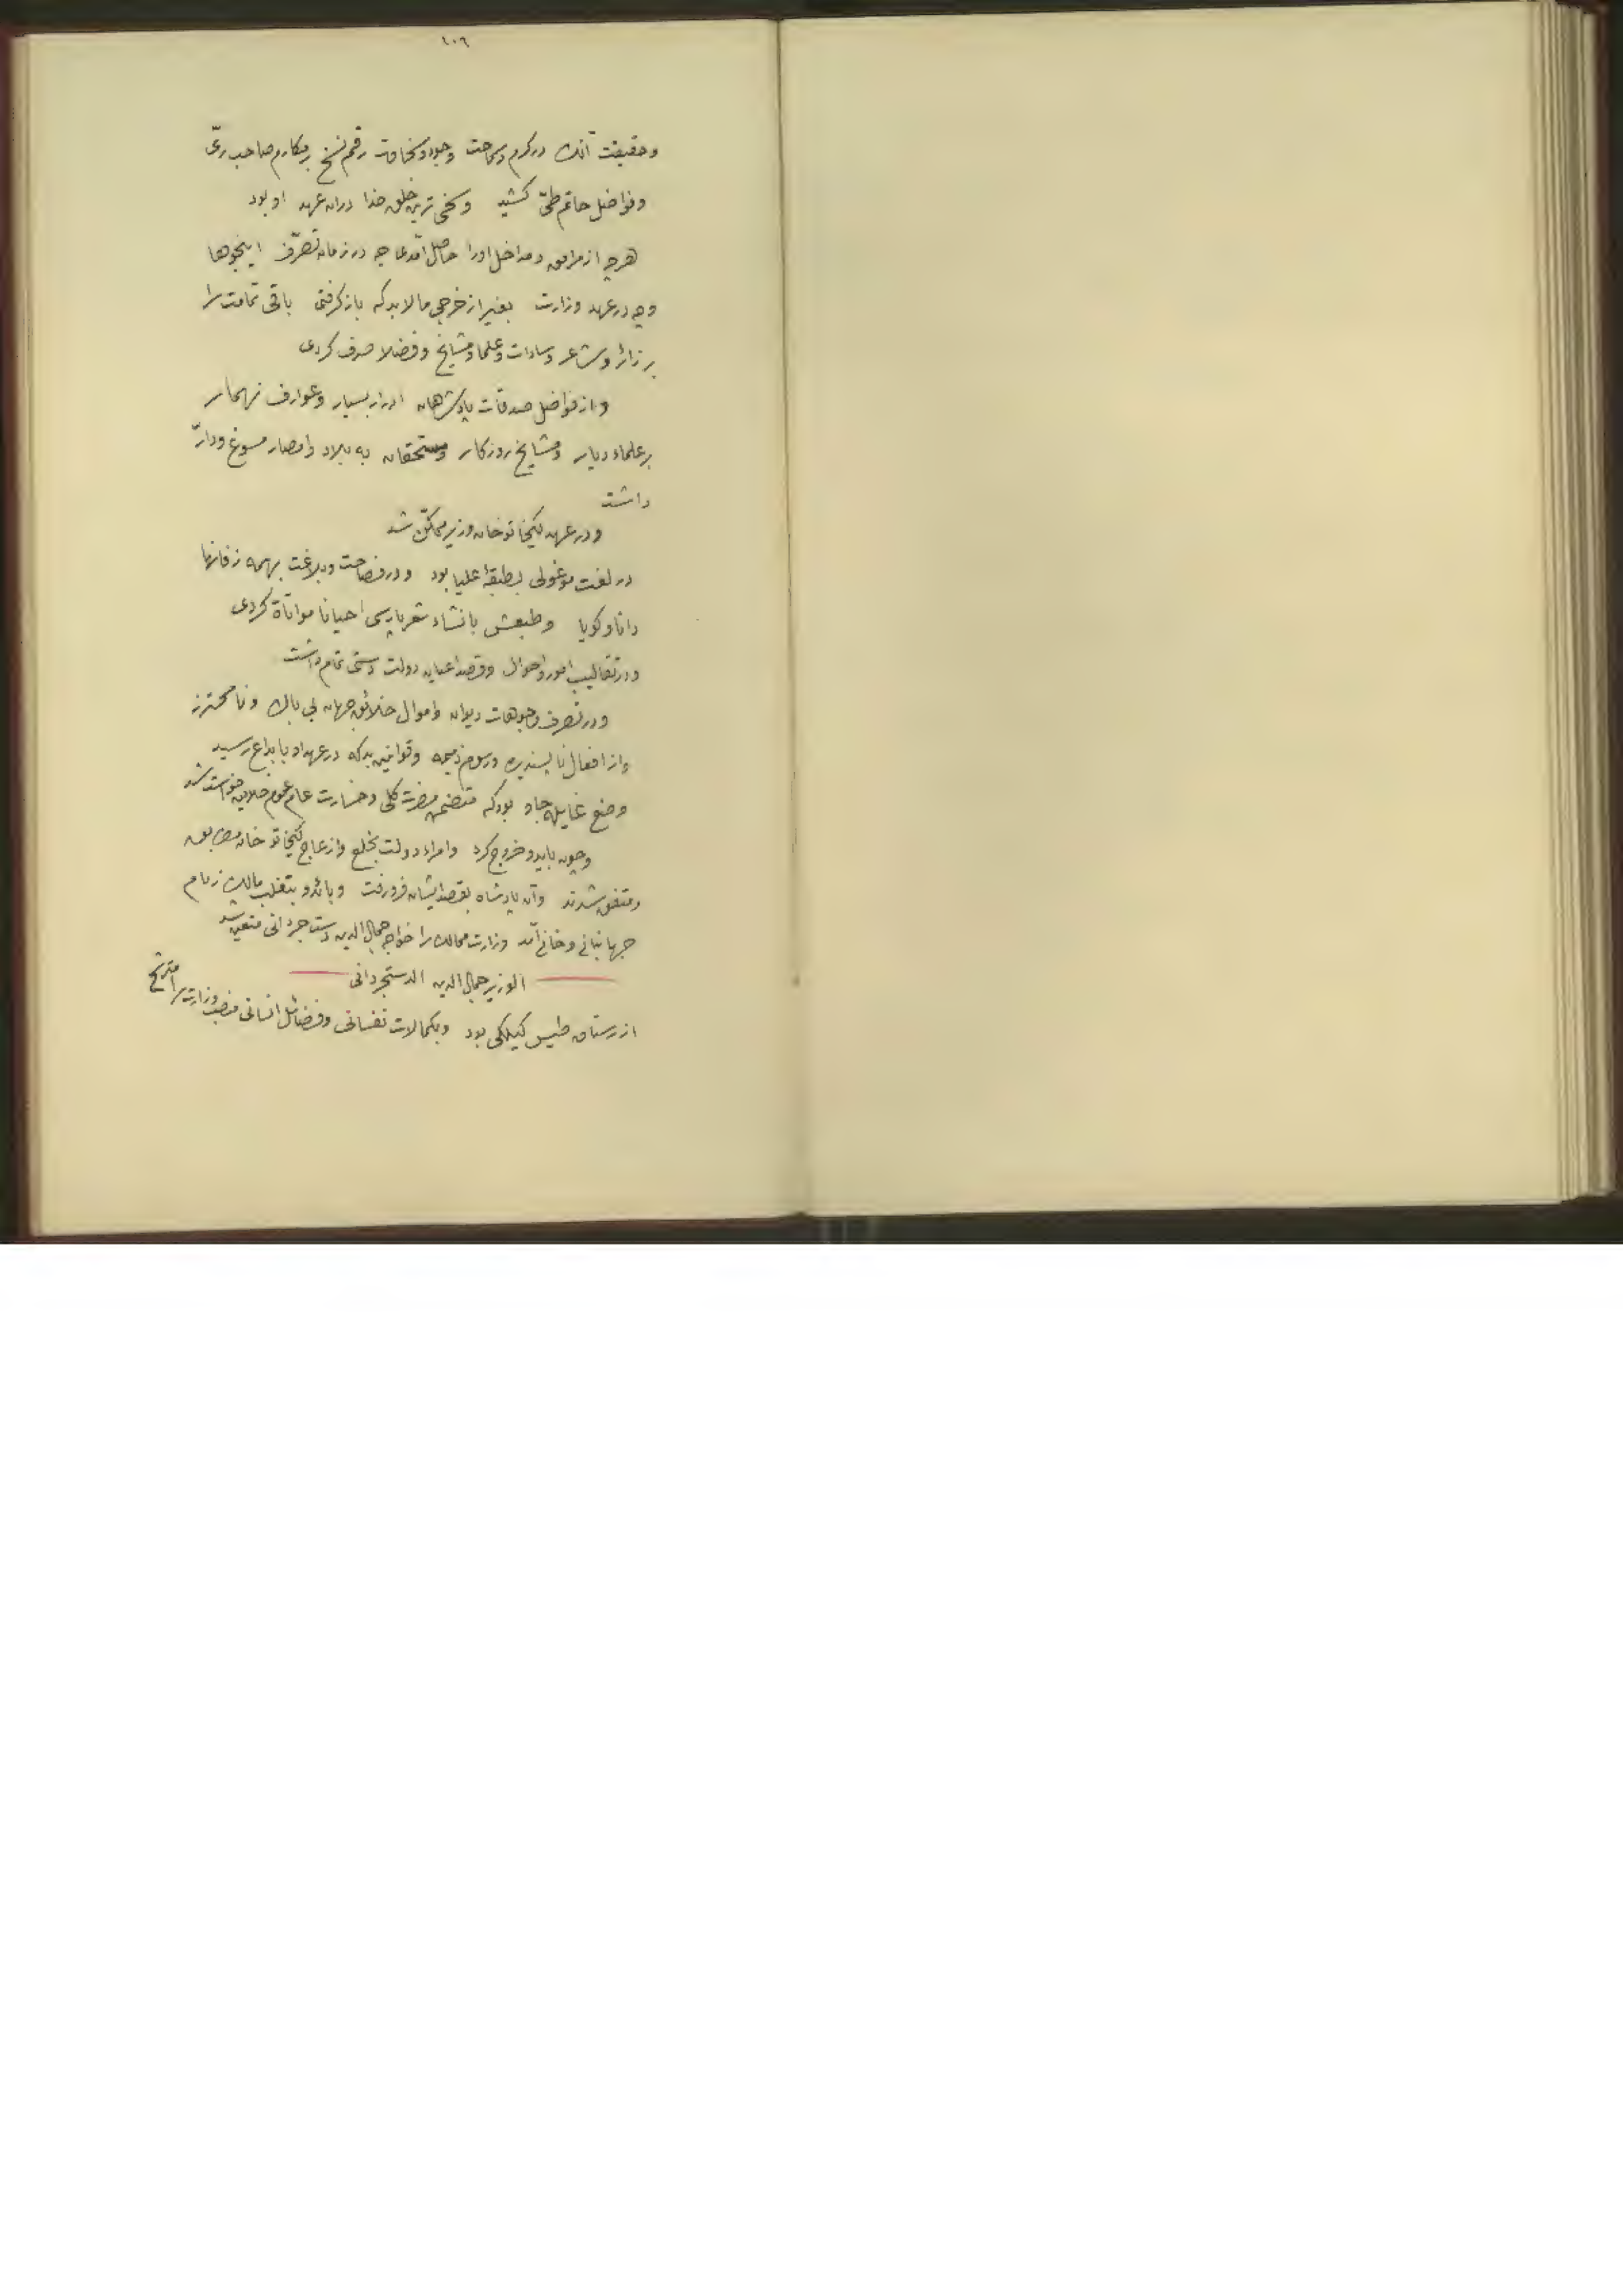 ١٠٦
وحقیقت آنک در کرم وسماحت وجود وسخاوت رقم نسخ بر مکارم صاحب ریّ
وفواضل حاتم طیّ کشید وسخی ترین خلق خذا دران عهد او بود
هرچه از مرافق ومداخل اورا حاصل آمدی چه در زمان تصرّف اینجوها
وچه در عهد وزارت بغیر از خرجی مالابد که بازگرفتی باقی تمامت را
بر زائر وشاعر وسادات وعلما ومشایخ وفضلا صرف کردی
واز فواضل صدقات پادشاهان ادرار بسیار وعوارف
بر علماء دیار ومشایخ روزکار ومستحقان به بلاد وامصار مسوغ ودارّ
داشت
ودر عهد کیخاتو خان وزیر ممکّن شد
در لغت موغولی بطبقهٔ علیا بود ودر فصاحت وبلاغت بهمه زفانها
دانا وکویا وطبعش بانشاء شعر پارسی احیانا مواتاة کردی
ودر تقالیب امور واحوال وقصد اعیان دولت دستی تمام داشت
ودر تصرف وجوهات دیوان واموال خلائق جهان بی باک ونا محترز
واز افعال ناپسندیده ورسوم ذمیمه وقوانین بد که در عهد او بابداع رسید
وضع غایلهٔ جاو بود که متضمن مضرت کلی وخسارت عام عموم خلایق
وچون بایدو خروج کرد وامراء دولت بخلع وازعاج کیخاتو خان
ومتفق شدند وآن پادشاه بقصد ایشان فرورفت وبائدو بتغلب مالک زمام
جهانبانی وخانی آمد وزارت ممالک را خواجه جمال الدین دست جردانی متعین شد
الوزیر جمال الدین الدستجردانی
از رستاق طبس کیلکی بود وبکمالات نفسانی وفضائل انسانی منصب وزارت را مترشح